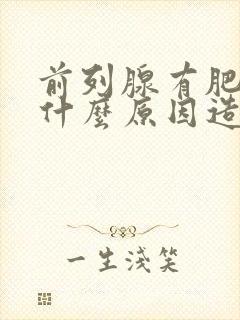 前列腺有肥
什麼原因造
一生淺笑